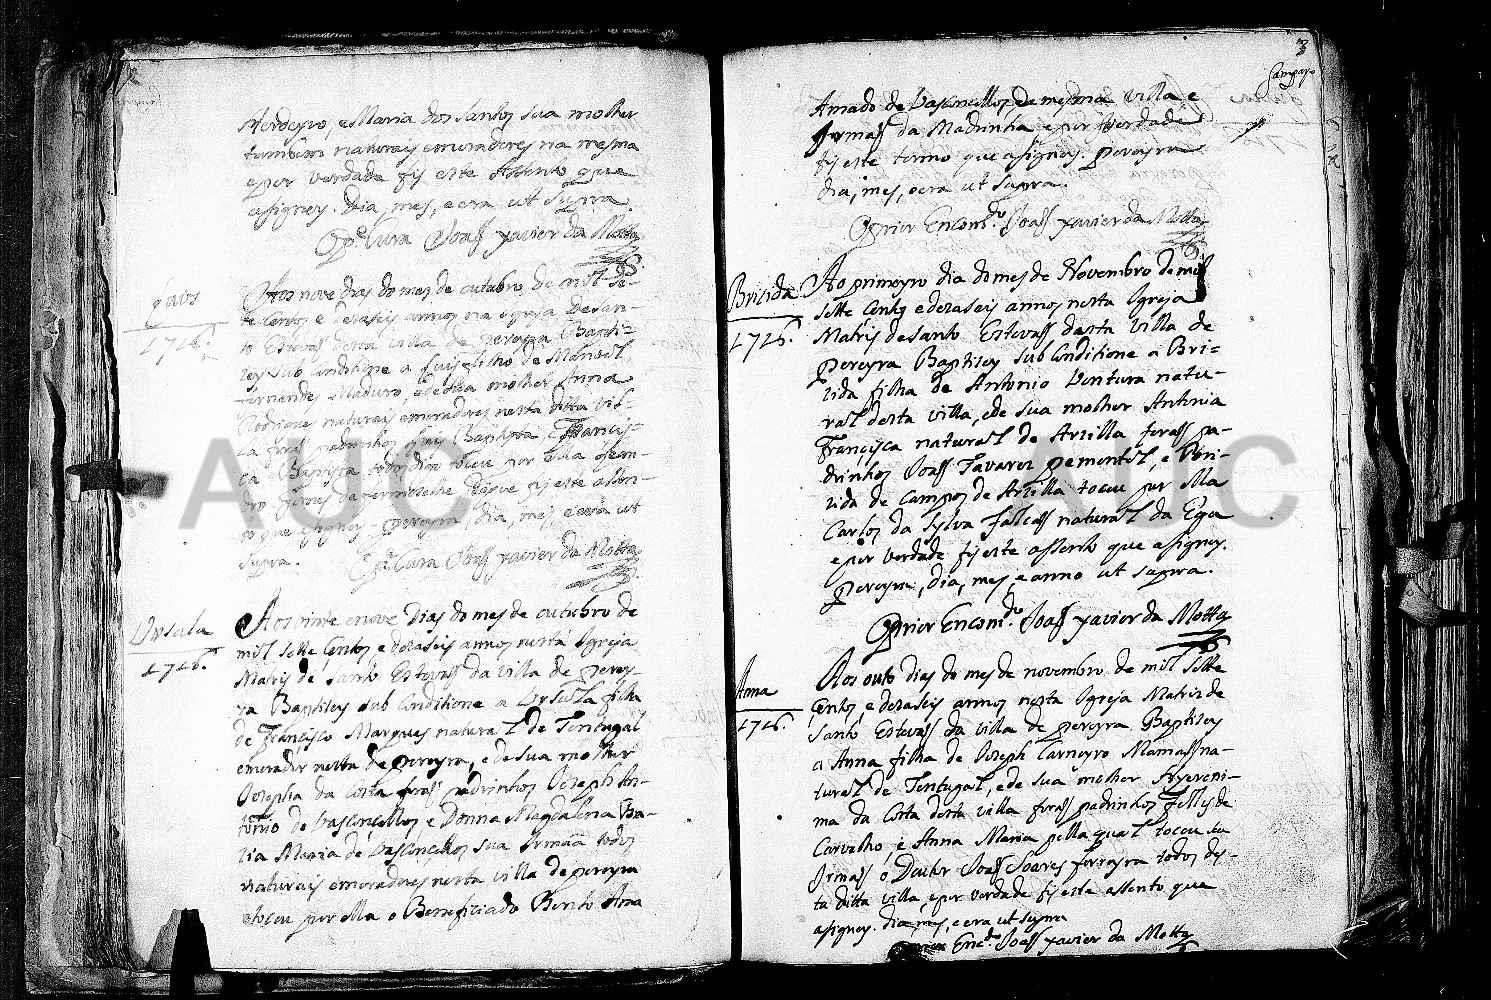 2
Herdeyro, e Maria dos Santos sua molher
tambem naturais emoradores na mesma
epor verdade fis este Asento que
asigney. Dia, mes, e era ut supra.
O P.e Cura Joaõ xavier da Motta
Luis
1716.
Aos nove dias do mes de outubro de mil se-
te Centos e dezaseis annos na Igreja de San-
to Estevaõ desta villa de pereyra Bapti-
zey sub Conditione a Luis filho de Manoel
fernandes Maduro, e de sua molher Anna
Rodrigues naturais emoradores nesta ditta vil-
la foraõ padrinhos Luis Baptista e Francis-
ca Baptista todos dizo tocou por ella
que fis este asen-
to que asigney. pereyra, dia, mes, e era ut
supra.
O P.e Cura Joaõ xavier da Motta
Vrsula
1716.
Aos vinte e nove dias do mes de outubro de
mil sette Centos e dezaseis annos nesta Igreja
Matris de Santo Estevaõ da villa de perey-
ra Baptizey sub Conditione a Vrsula filha
de Francisco Marques natural de Tentugal
emorador nesta de pereyra, e de sua molher
Josepha da Costa foraõ padrinhos Joseph An-
tonio de Vasconcellos e Donna Magdalena Ba-
zia Maria de Vasconcellos sua Irmãa todos
naturais emoradores nesta villa de pereyra
etocou por ella o Beneficiado Bento Ama
3
Sampayo
Amado de Vasconcellos da mesma villa e
Jrmaõ da Madrinha epor verdade
fis este termo que asigney. pereyra
dia, mes, e era ut supra.
O prior Encom.do Joaõ xavier da Motta
Brizida
1716.
Ao primeyro dia do mes de Novembro de mil
sette Centos e dezaseis annos nesta Igreja
Matris de Santo Estevaõ desta villa de
pereyra Baptizey sub Conditione a Bri-
zida filha de Antonio Ventura natu-
ral desta villa, e de sua molher Antonia
Francisca natural de Arzilla foraõ pa-
drinhos Joaõ Tavares pementel, e Bri-
zida de Campos de Arzilla tocou por ella
Carlos da Sylva falcaõ natural da Ega
epor verdade fis este assento que asigney.
pereyra, dia, mes, e anno ut supra.
O prior Encom.do Joaõ xavier da Motta
Anna
1716.
Aos outo dias do mes de novembro de mil sette
Centos e dezaseis annos nesta Igreja Matris de
Santo Estevaõ da villa de pereyra Baptizey
a Anna filha de Joseph Carneyro Mamaõ na-
tural de Tentugal, e de sua molher Hyeroni-
ma da Costa desta villa foraõ padrinhos Fellis de
Carvalho, e Anna Maria pella qual tocou seu
Jrmaõ o Doutor Joaõ Soares ferreyra todos des-
ta ditta villa, epor verdade fis este assento que
asigney. dia, mes, e era ut supra
O prior Enc.do Joaõ xavier da Motta
AUC AUC